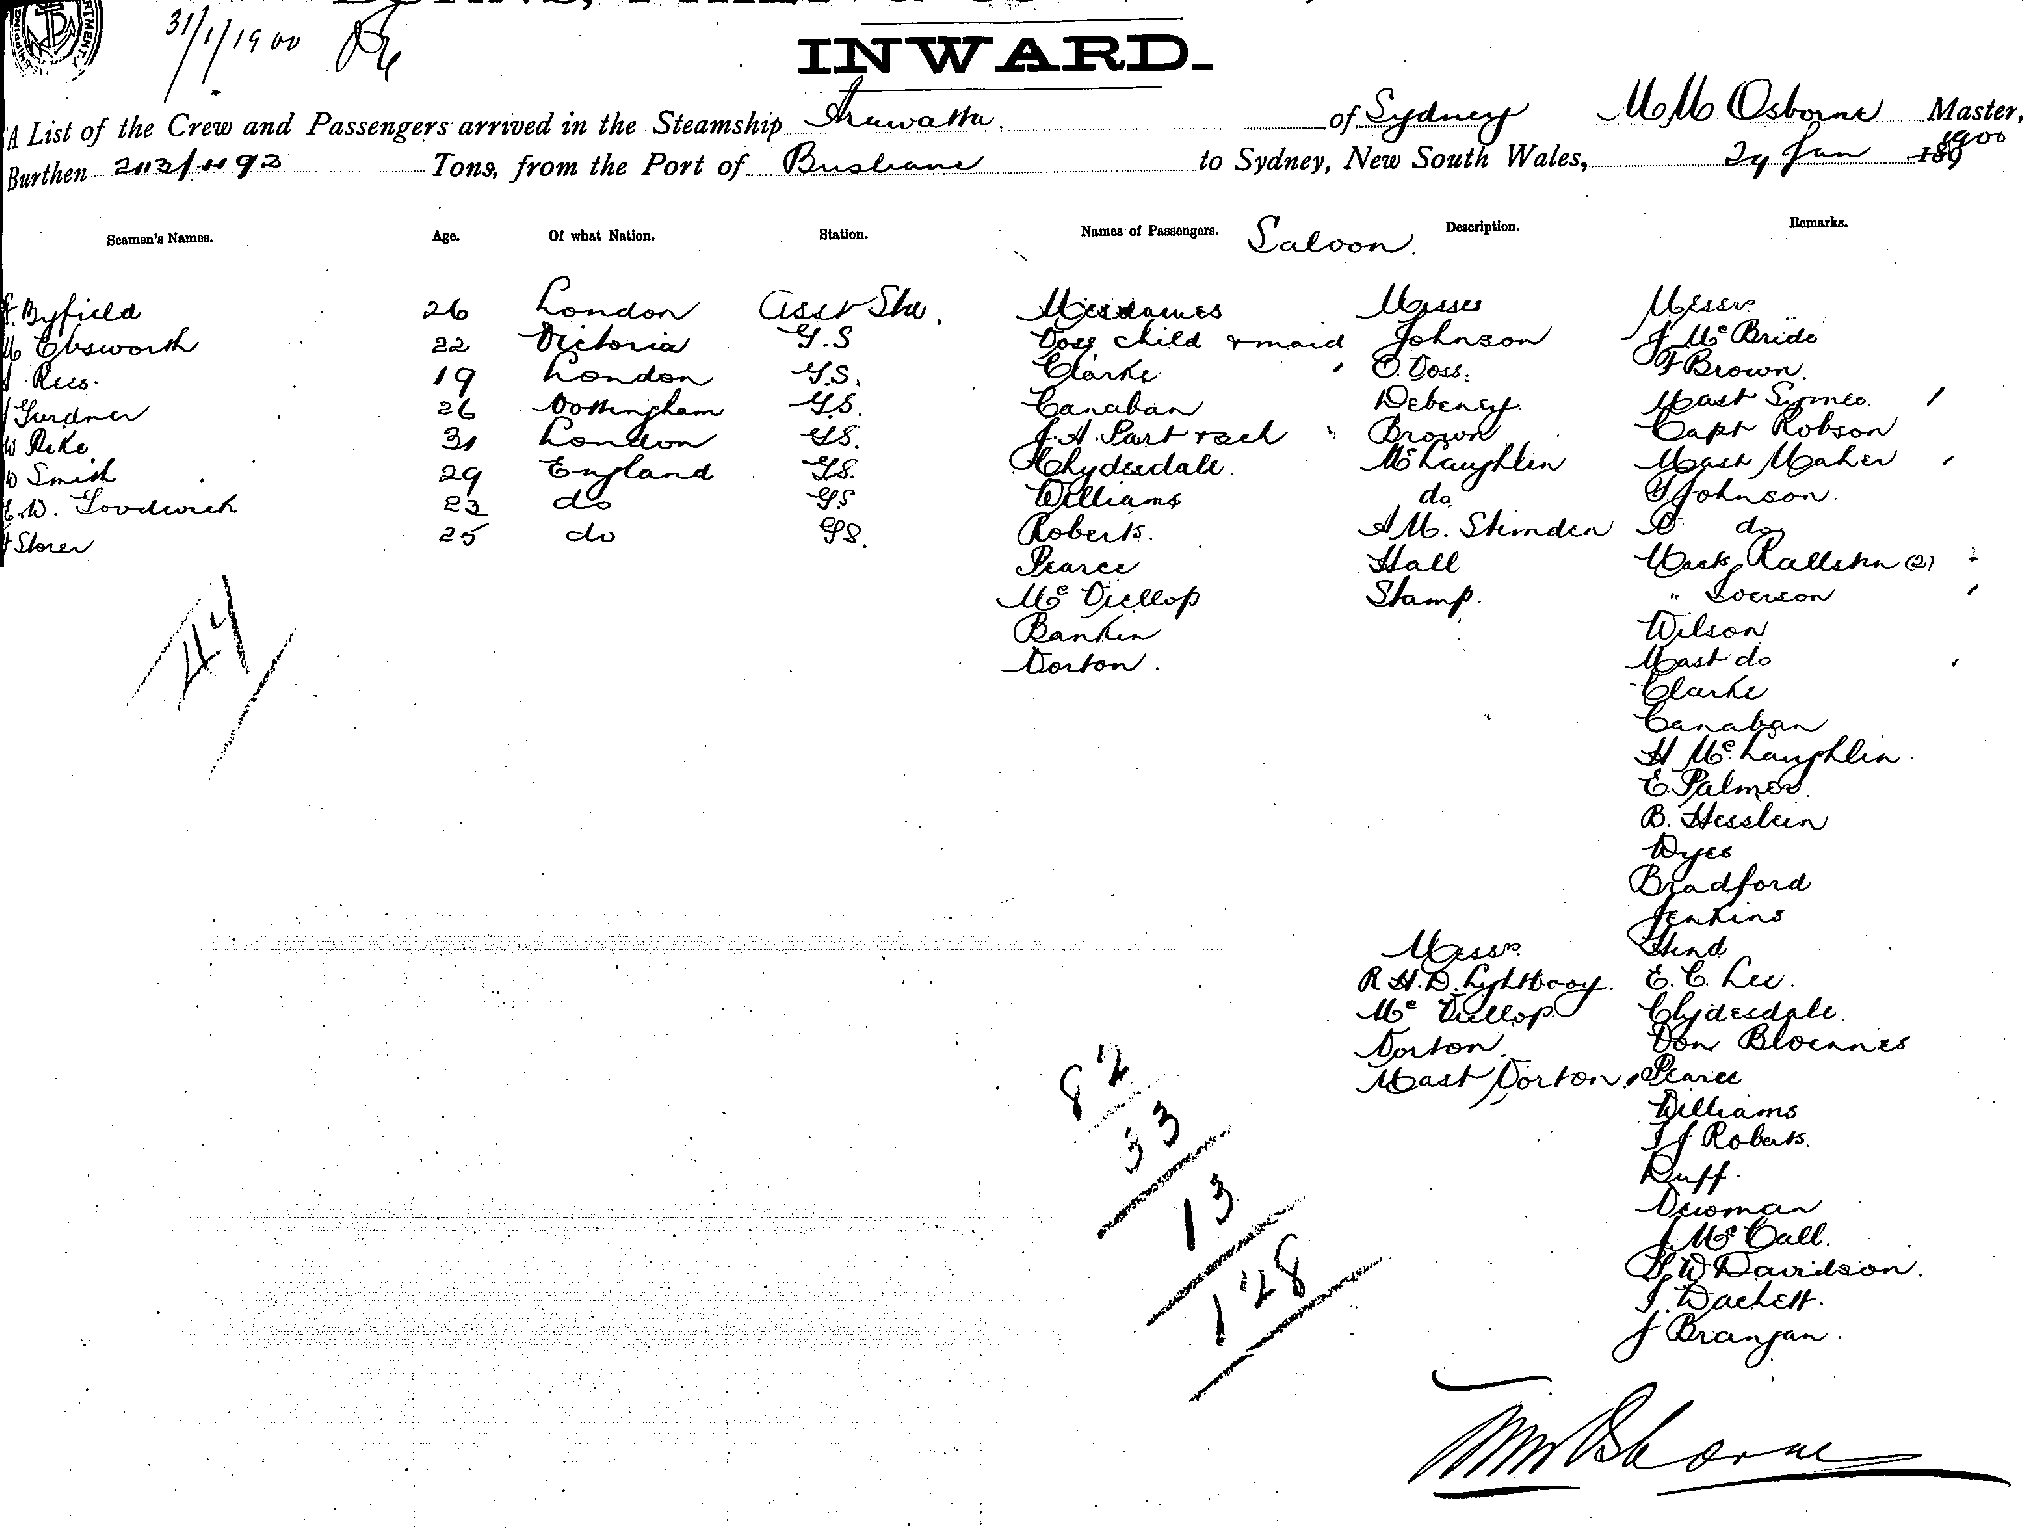 31/1/1900
INWARD.
A List of the Crew and Passengers arrived in the Steamship Arawatta of Sydney M M Osborne Master,
Burthen Tons, from the Port of Brisbane to Sydney, New South Wales, 29 Jan 1900
Seamen's Names. Age. Of what Nation. Station. Names of Passengers. Saloon. Description. Remarks.
Byfield 26 London Asst Stw. Mesdames Misses Messrs
Ebsworth 22 Victoria G.S Voss child & maid Johnson J McBride
Rees. 19 London G.S. Clarke Voss. F Brown.
Gurdner 26 Nottingham G.S. Canaban Debeney. Mast
W Pike 31 London G.S. J. A. Brown Capt Robson
W Smith 29 England G.S. Clydesdale. McLaughlin Mast Maher
E. W. 23 do G.S Williams do G Johnson.
Storer 25 do G.S. Roberts. A M. do
Pearce Hall Mast Ralston (2)
Mc Stamp. "
Bankin Wilson
Norton. Mast do
44 Clarke
Canaban
H McLaughlin.
E. Palmer.
B. Hesslein
Dyes
Bradford
Jenkins
Messrs Hind
R. H. D. Lightbody. E. C. Lee.
Mc Clydesdale.
Norton. Von
Mast Norton Pearce
Williams
T J Roberts.
Duff.
Newman
J. McCall.
G W Davidson.
J
82
33
13
128
M M Osborne